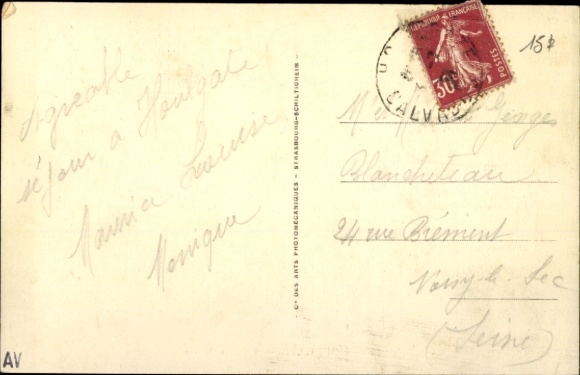 Agréable
séjour à Houlgate
Maurice Louise
Monique
Cie DES ARTS PHOTOMÉCANIQUES - STRASBOURG-SCHILTIGHEIM -
RÉPUBLIQUE FRANÇAISE
30
POSTES
CALVADOS
15F
Georges
Blancheteau
24 rue Brément
Noisy-le-Sec
(Seine)
AV